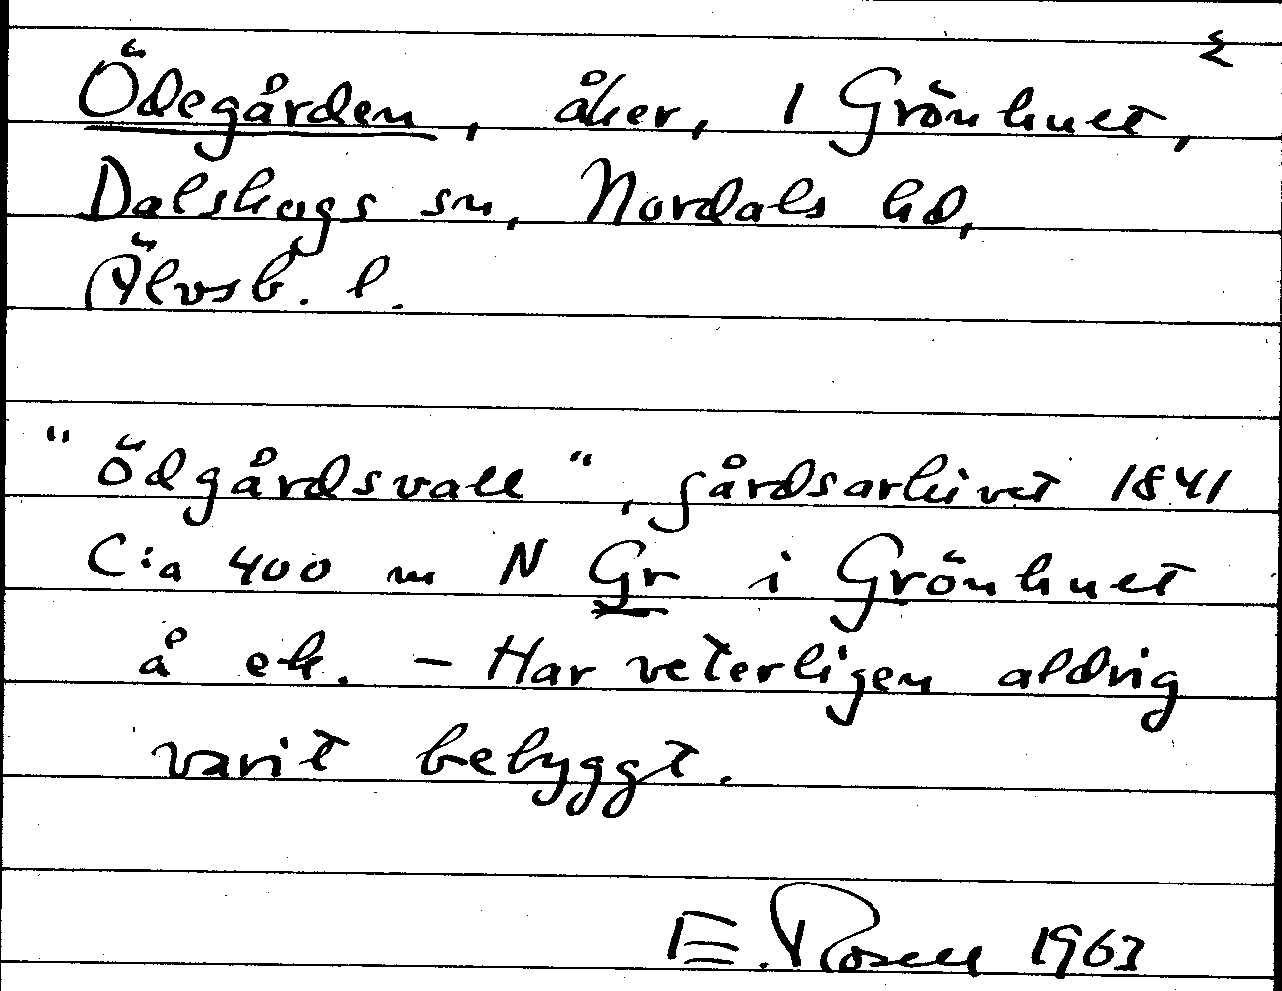 Ödegården, åker, 1 Grönhuet,
Dalskogs sn, Nordals hd,
Älvsb. l.
"Ödgårdsvall", gårdsarkivet 1841
C:a 400 m N Gr i Grönhuet
å ek. - Har veterligen aldrig
varit bebyggt.
E. Rosell 1963